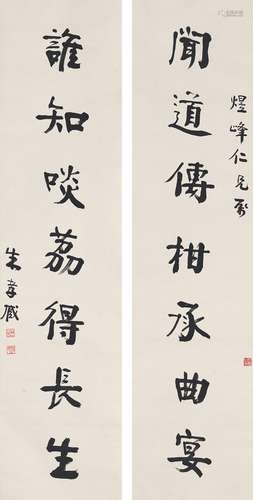 煜峰仁兄属
聞道傳柑承曲宴
誰知啖荔得長生
朱孝臧